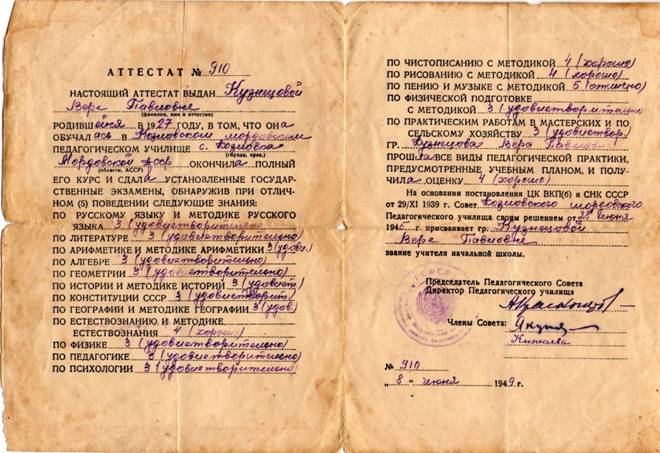 АТТЕСТАТ № 910
НАСТОЯЩИЙ АТТЕСТАТ ВЫДАН Кузнецовой
Вере Павловне
(фамилия, имя и отчество)
РОДИВШЕЙСЯ В 1927 ГОДУ, В ТОМ, ЧТО ОНА
ОБУЧАЛАСЬ В Козловском мордовском
ПЕДАГОГИЧЕСКОМ УЧИЛИЩЕ с. Козловка
(города, края,
Мордовской АССР ОКОНЧИЛА ПОЛНЫЙ
(области, АССР)
ЕГО КУРС И СДАЛА УСТАНОВЛЕННЫЕ ГОСУДАР-
СТВЕННЫЕ ЭКЗАМЕНЫ, ОБНАРУЖИВ ПРИ ОТЛИЧ-
НОМ (5) ПОВЕДЕНИИ СЛЕДУЮЩИЕ ЗНАНИЯ:
ПО РУССКОМУ ЯЗЫКУ И МЕТОДИКЕ РУССКОГО
ЯЗЫКА 3 (удовлетворительно)
ПО ЛИТЕРАТУРЕ 3 (удовлетворительно)
ПО АРИФМЕТИКЕ И МЕТОДИКЕ АРИФМЕТИКИ 3 (удовл)
ПО АЛГЕБРЕ 3 (удовлетворительно)
ПО ГЕОМЕТРИИ 3 (удовлетворительно)
ПО ИСТОРИИ И МЕТОДИКЕ ИСТОРИИ 3 (удовлет)
ПО КОНСТИТУЦИИ СССР 3 (удовлетворит)
ПО ГЕОГРАФИИ И МЕТОДИКЕ ГЕОГРАФИИ 3 (удов)
ПО ЕСТЕСТВОЗНАНИЮ И МЕТОДИКЕ
ЕСТЕСТВОЗНАНИЯ 4 (хорошо)
ПО ФИЗИКЕ 3 (удовлетворительно)
ПО ПЕДАГОГИКЕ 3 (удовлетворительно)
ПО ПСИХОЛОГИИ 3 (удовлетворительно)
ПО ЧИСТОПИСАНИЮ С МЕТОДИКОЙ 4 (хорошо)
ПО РИСОВАНИЮ С МЕТОДИКОЙ 4 (хорошо)
ПО ПЕНИЮ И МУЗЫКЕ С МЕТОДИКОЙ 5 (отлично)
ПО ФИЗИЧЕСКОЙ ПОДГОТОВКЕ
С МЕТОДИКОЙ 3 (удовлетворительно)
ПО ПРАКТИЧЕСКИМ РАБОТАМ В МАСТЕРСКИХ И ПО
СЕЛЬСКОМУ ХОЗЯЙСТВУ 3 (удовлетвор)
ГР. Кузнецова Вера Павловна
ПРОШЛА ВСЕ ВИДЫ ПЕДАГОГИЧЕСКОЙ ПРАКТИКИ,
ПРЕДУСМОТРЕННЫЕ УЧЕБНЫМ ПЛАНОМ, И ПОЛУ-
ЧИЛА ОЦЕНКУ 4 (хорошо)
На основании постановления ЦК ВКП(б) и СНК СССР
от 29/XI 1939 г. Совет Козловского мордовского
Педагогического училища своим решением от 28 июня
194 г. присваивает гр. Кузнецовой
Вере Павловне
звание учителя начальной школы.
Председатель Педагогического Совета
Директор Педагогического училища
Члены Совета:
№ 910
"8" июня 1949 г.